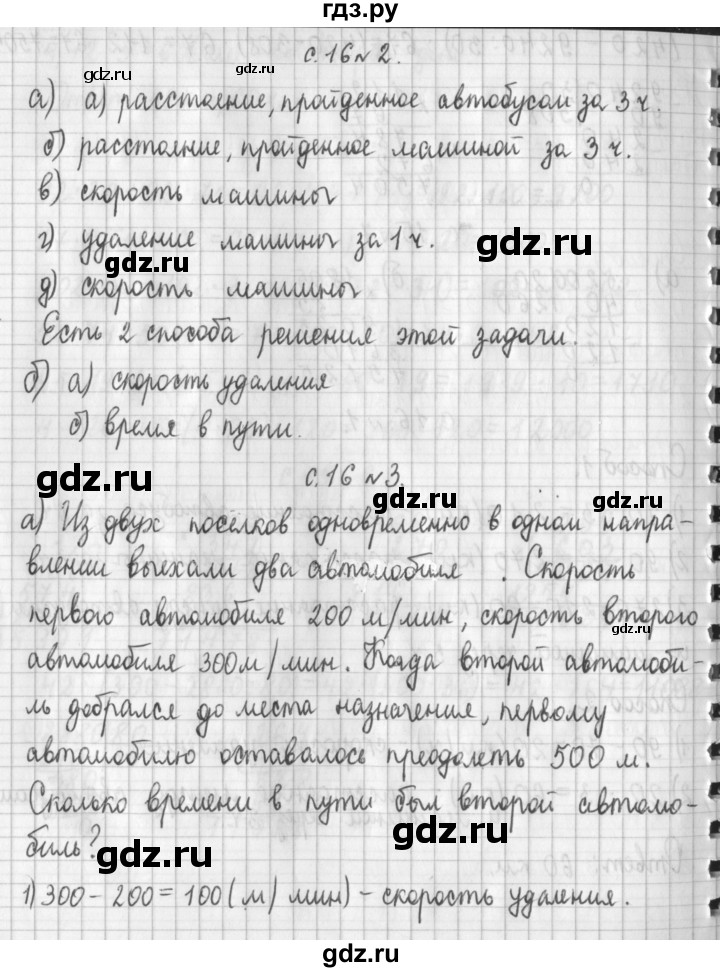 гдз.ру
с.16 №2.
а) а) расстояние, пройденное автобусом за 3 ч.
б) расстояние, пройденное машиной за 3 ч.
в) скорость машины
г) удаление машины за 1 ч.
д) скорость машины
Есть 2 способа решения этой задачи.
б) а) скорость удаления
б) время в пути.
с.16 №3.
а) Из двух посёлков одновременно в одном напра-
влении выехали два автомобиля . Скорость
первого автомобиля 200 м/мин, скорость второго
автомобиля 300м/мин. Когда второй автомоби-
ль добрался до места назначения, первому
автомобилю оставалось преодолеть 500 м.
Сколько времени в пути был второй автомо-
биль?
1) 300 - 200 = 100 (м/мин) - скорость удаления.
gdz.ru
gdz.ru
gdz.ru
gdz.ru
gdz.ru
gdz.ru
gdz.ru
gdz.ru
gdz.ru
gdz.ru
gdz.ru
gdz.ru